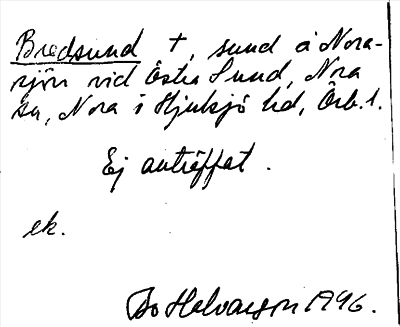 Bredsund †, sund å Nora-
sjön vid Östra Sund, Nora
sn, Nora i Hjulsjö hd, Örb. l.
Ej anträffat.
ek.
Bo Helvarson 1996.